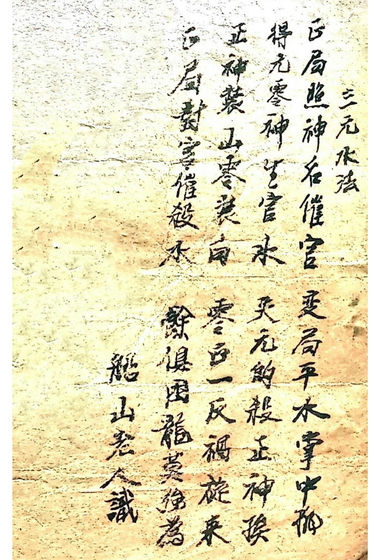 三元水法
正局照神名催官 变局平水掌中
得元零神生官水 失元的殺正神挨
正神裝山零裝向 零正一反禍旋来
正局對宮催殺水 餘俱因龍莫強為
山老人識